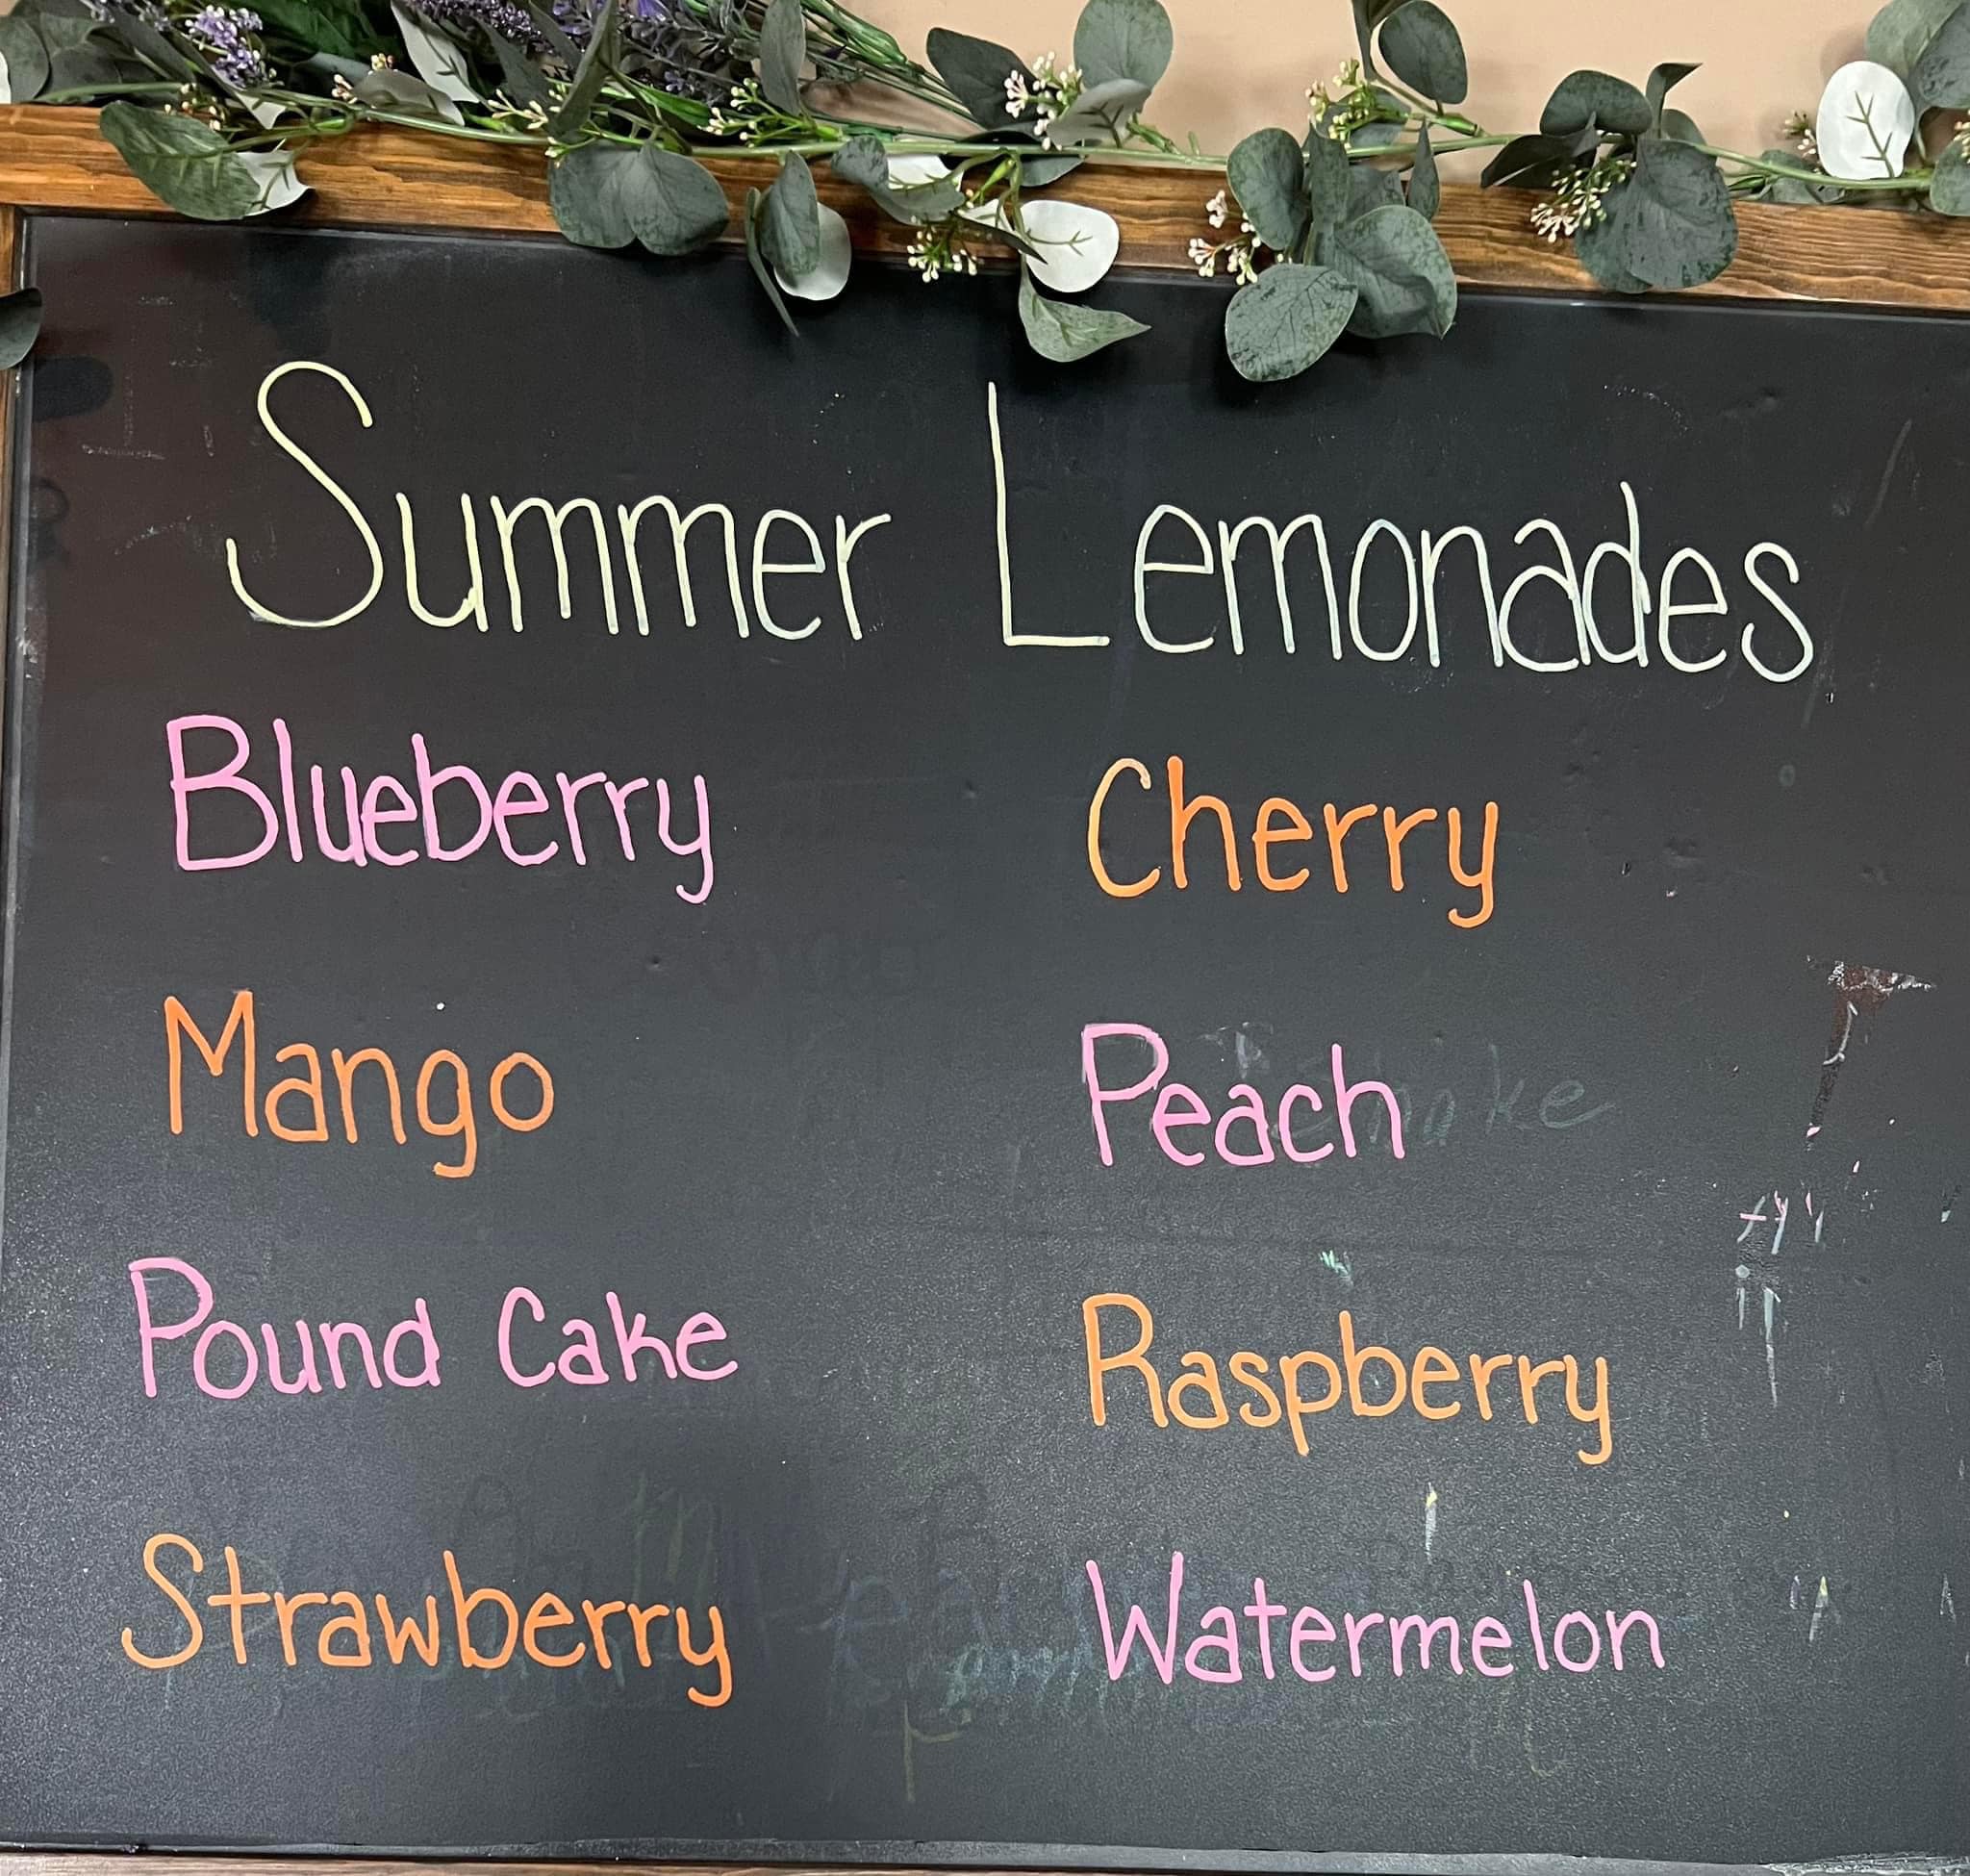 Summer Lemonades
Blueberry
Cherry
Mango
Peach
Pound Cake
Raspberry
Strawberry
Watermelon